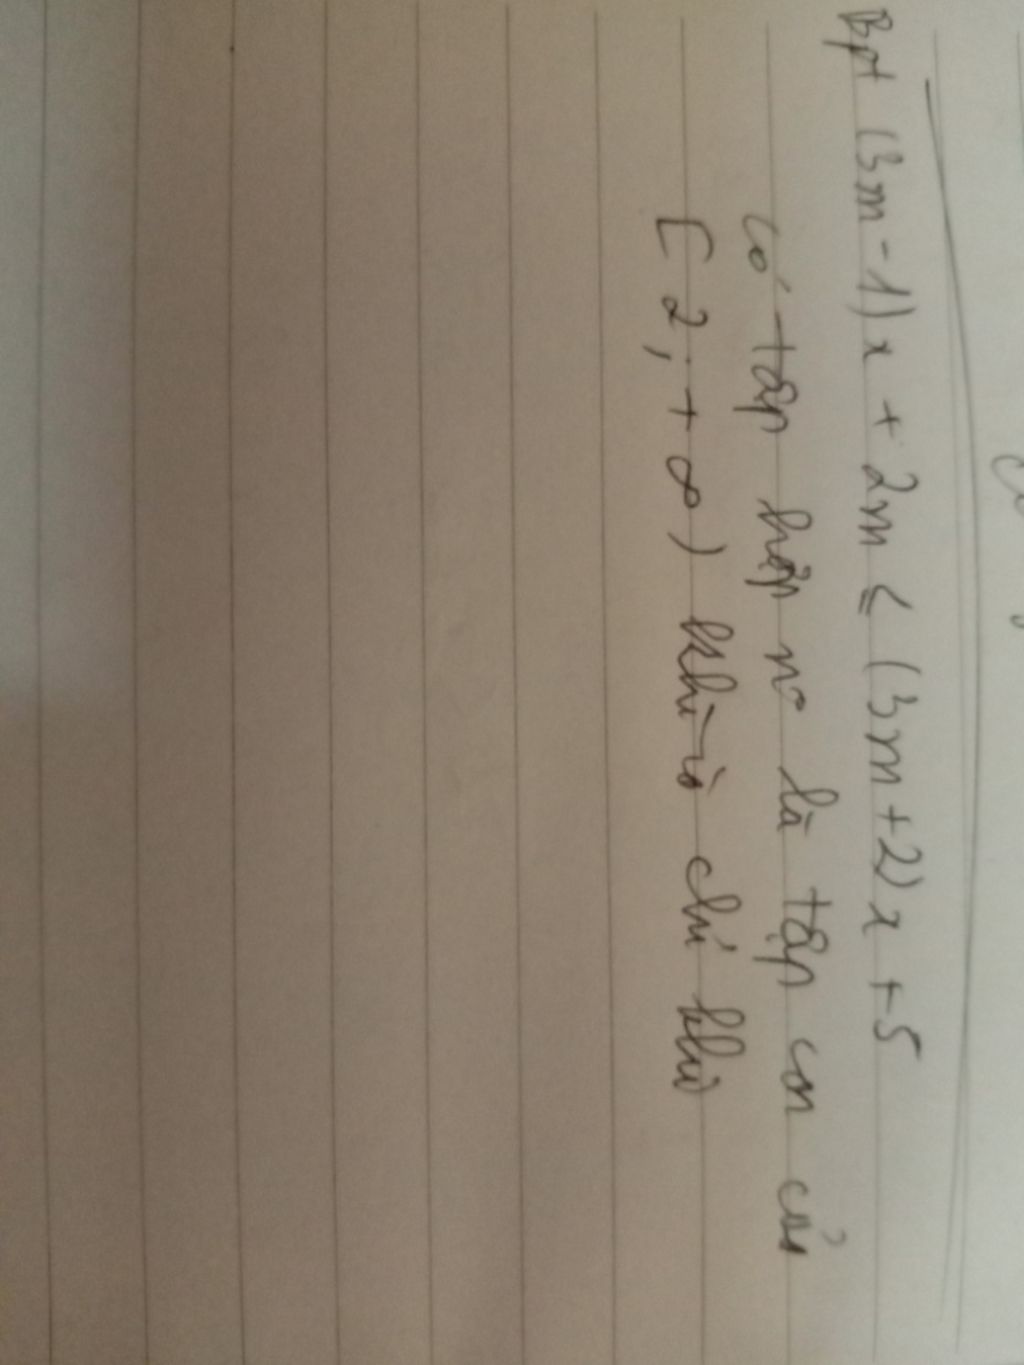 Bpt (3m-1)x + 2m ≤ (3m+2)x + 5
có tập hợp no là tập con của
[2; +∞) khi và chỉ khi